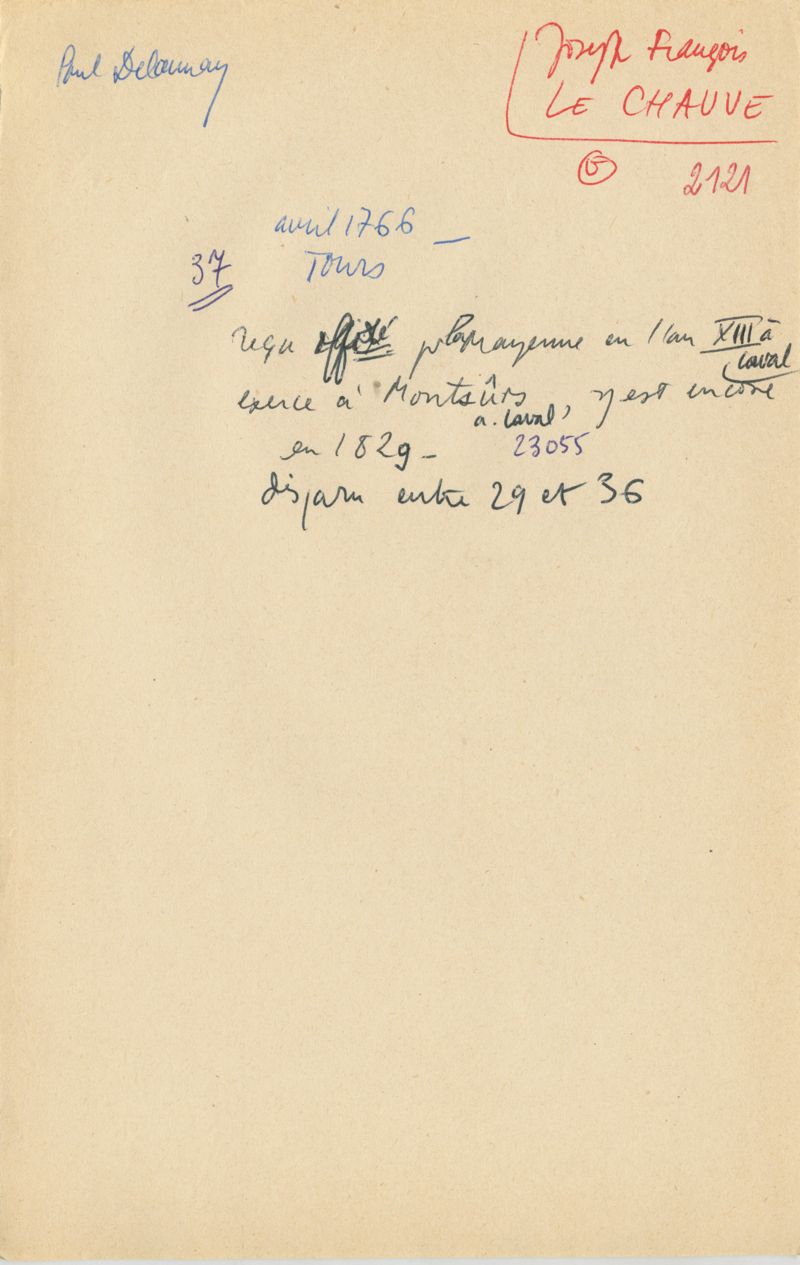 Paul Delaunay
Joseph François
LE CHAUVE
2121
avril 1766 _
37 Tours
reçu pr la Mayenne en l'an XIII à
Laval
exerce à Montsûrs, y est encore
a. Laval
en 1829 - 23055
disparu entre 29 et 36